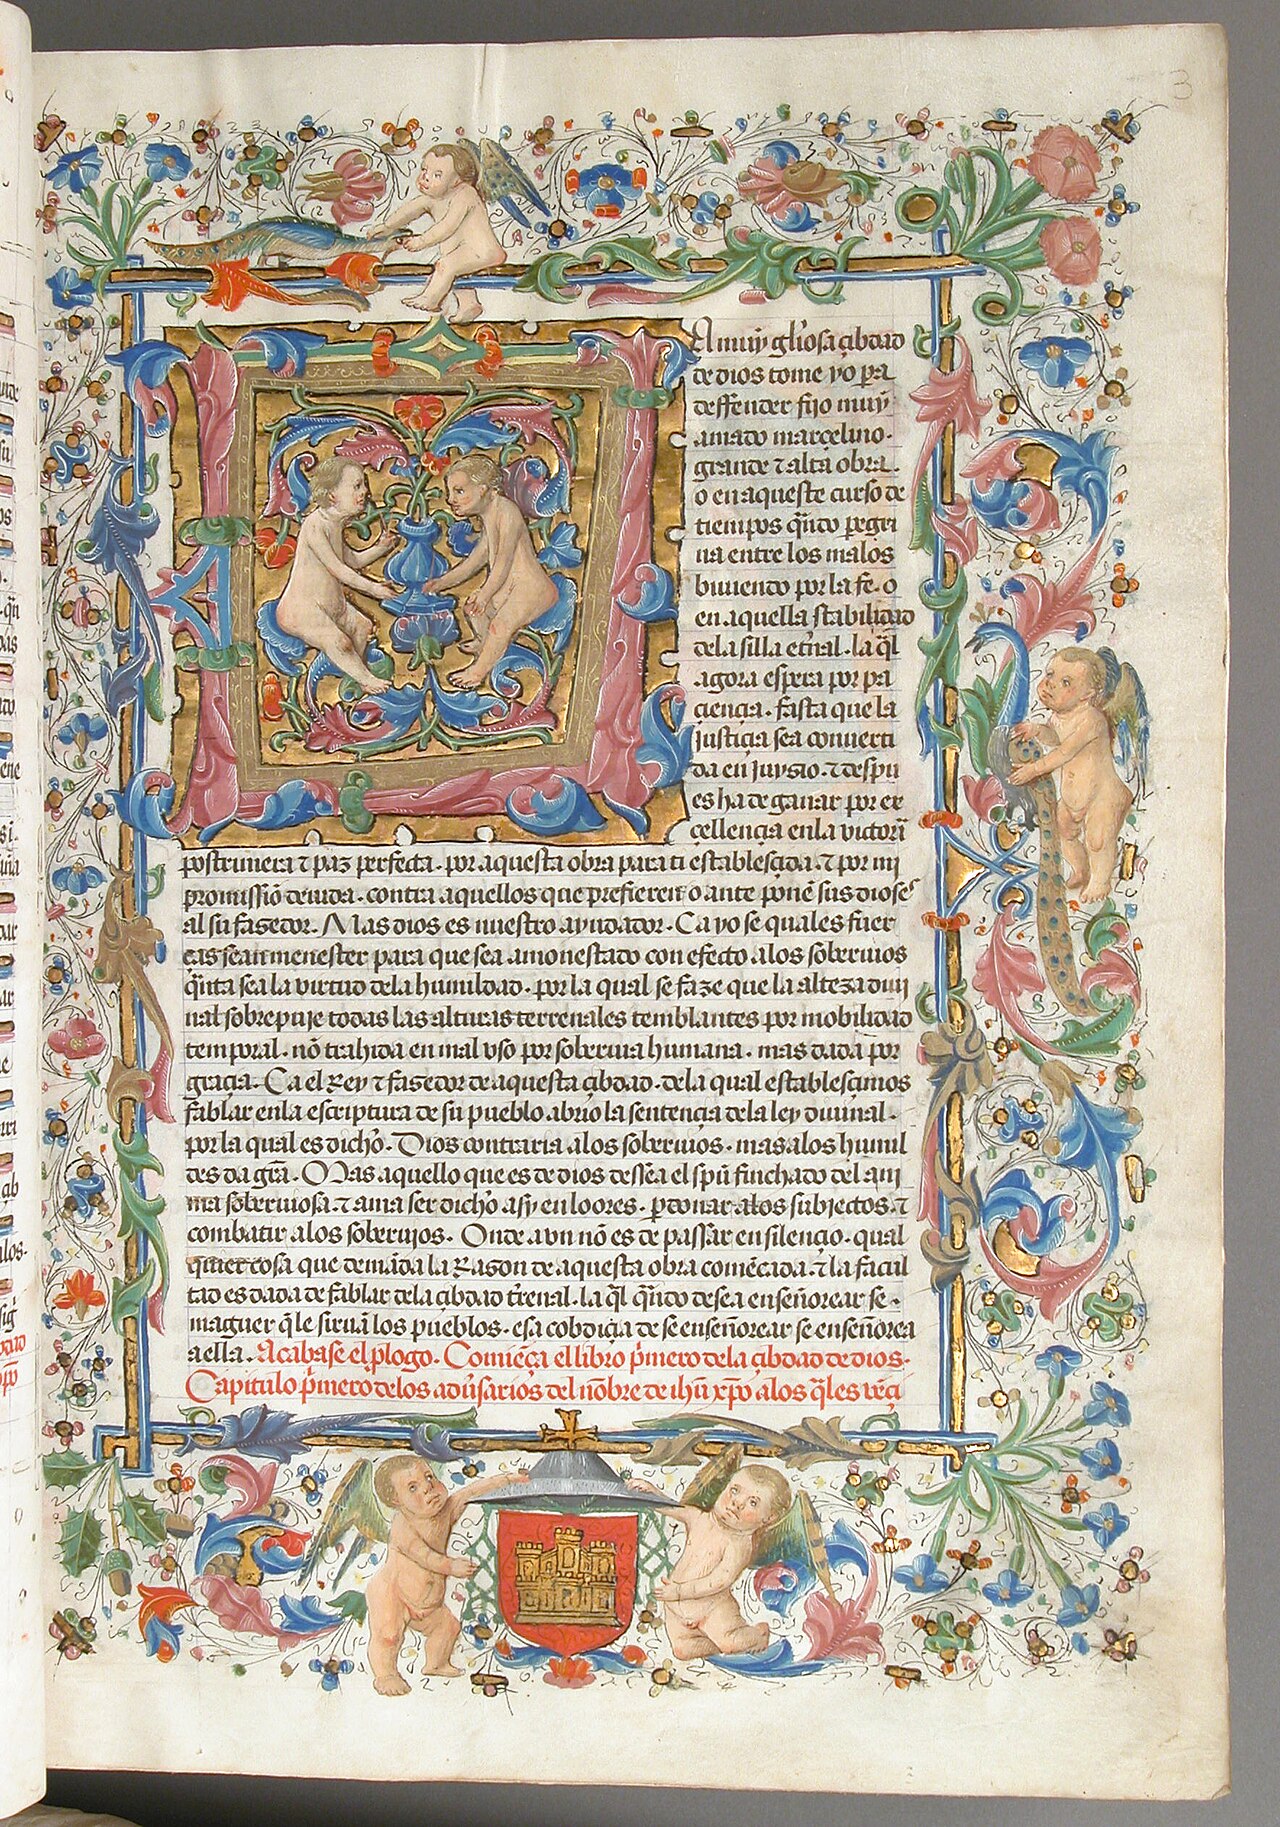 3
A muy gl'iosa çibdad
de dios tome yo pa
deffender fijo muy
amado marcelino·
grande ⁊ alta obra
o en aqueste curso de
tiempos q̃ndo pegri
na entre los malos
biuiendo por la fe· o
en aquella stabilidad
dela silla et̃nal· la q̃l
agora espera por pa
ciençia· fasta que la
justiçia sea conuerti
da en juysio· ⁊ despu
es ha de ganar por ex
çellençia enla victori
postrimera ⁊ paz perfecta· por aquesta obra para ti establesçida· ⁊ por mi
promissiõ deuida· contra aquellos que prefieren o ante ponẽ sus dioses
al su fasedor· Mas dios es nuestro ayudador· Ca yo se quales fuer
ças sean menester para que sea amonestado con efecto alos soberuios
q̃nta sea la virtud dela humildad· por la qual se faze que la alteza diui
nal sobrepuje todas las alturas terrenales temblantes por mobilidad
temporal· nõ trahida en mal vso por soberuia humana· mas dada por
graçia· Ca el Rey ⁊ fasedor de aquesta çibdad· dela qual establesçimos
fablar enla escriptura de su pueblo abrio la sentençia dela ley diuinal·
por la qual es dicho· Dios contraria alos soberuios· mas alos humil
des da grã· Mas aquello que es de dios dessea el spũ finchado del ani
ma soberuiosa· ⁊ ama ser dicho asy en loores· pdonar alos subiectos· ⁊
combatir alos soberuios· Onde avn nõ es de passar en silençio· qual
quier cosa que demãda la Rason de aquesta obra comẽcada· ⁊ la facil
tad es dada de fablar dela çibdad t̃renal· la q̃l q̃ndo desea enseñorear se·
maguer q̃ le siruã los pueblos· esa cobdiçia de se enseñorear se enseñorea
a ella· Acabase el plogo· Comiẽça el libro p̃mero dela çibdad de dios·
Capitulo p̃mero delos adũsarios del nõbre de ihũ xp̃o alos q̃les vẽçi